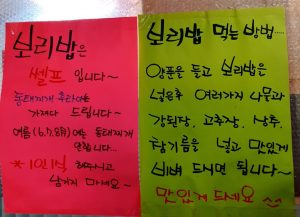 보리밥은
쎌프 입니다~
동태찌개 추가는
가져다 드립니다~
여름(6.7.8월)에는 동태찌개
안합니다...
*1인1식 해주시고
남기지 마세요~
보리밥 먹는 방법.....
양푼을 들고 보리밥을
넣은후 여러가지 나물과
강된장, 고추장, 상추,
참기름을 넣고 맛있게
비벼 드시면 됩니다~
맛있게 드세요